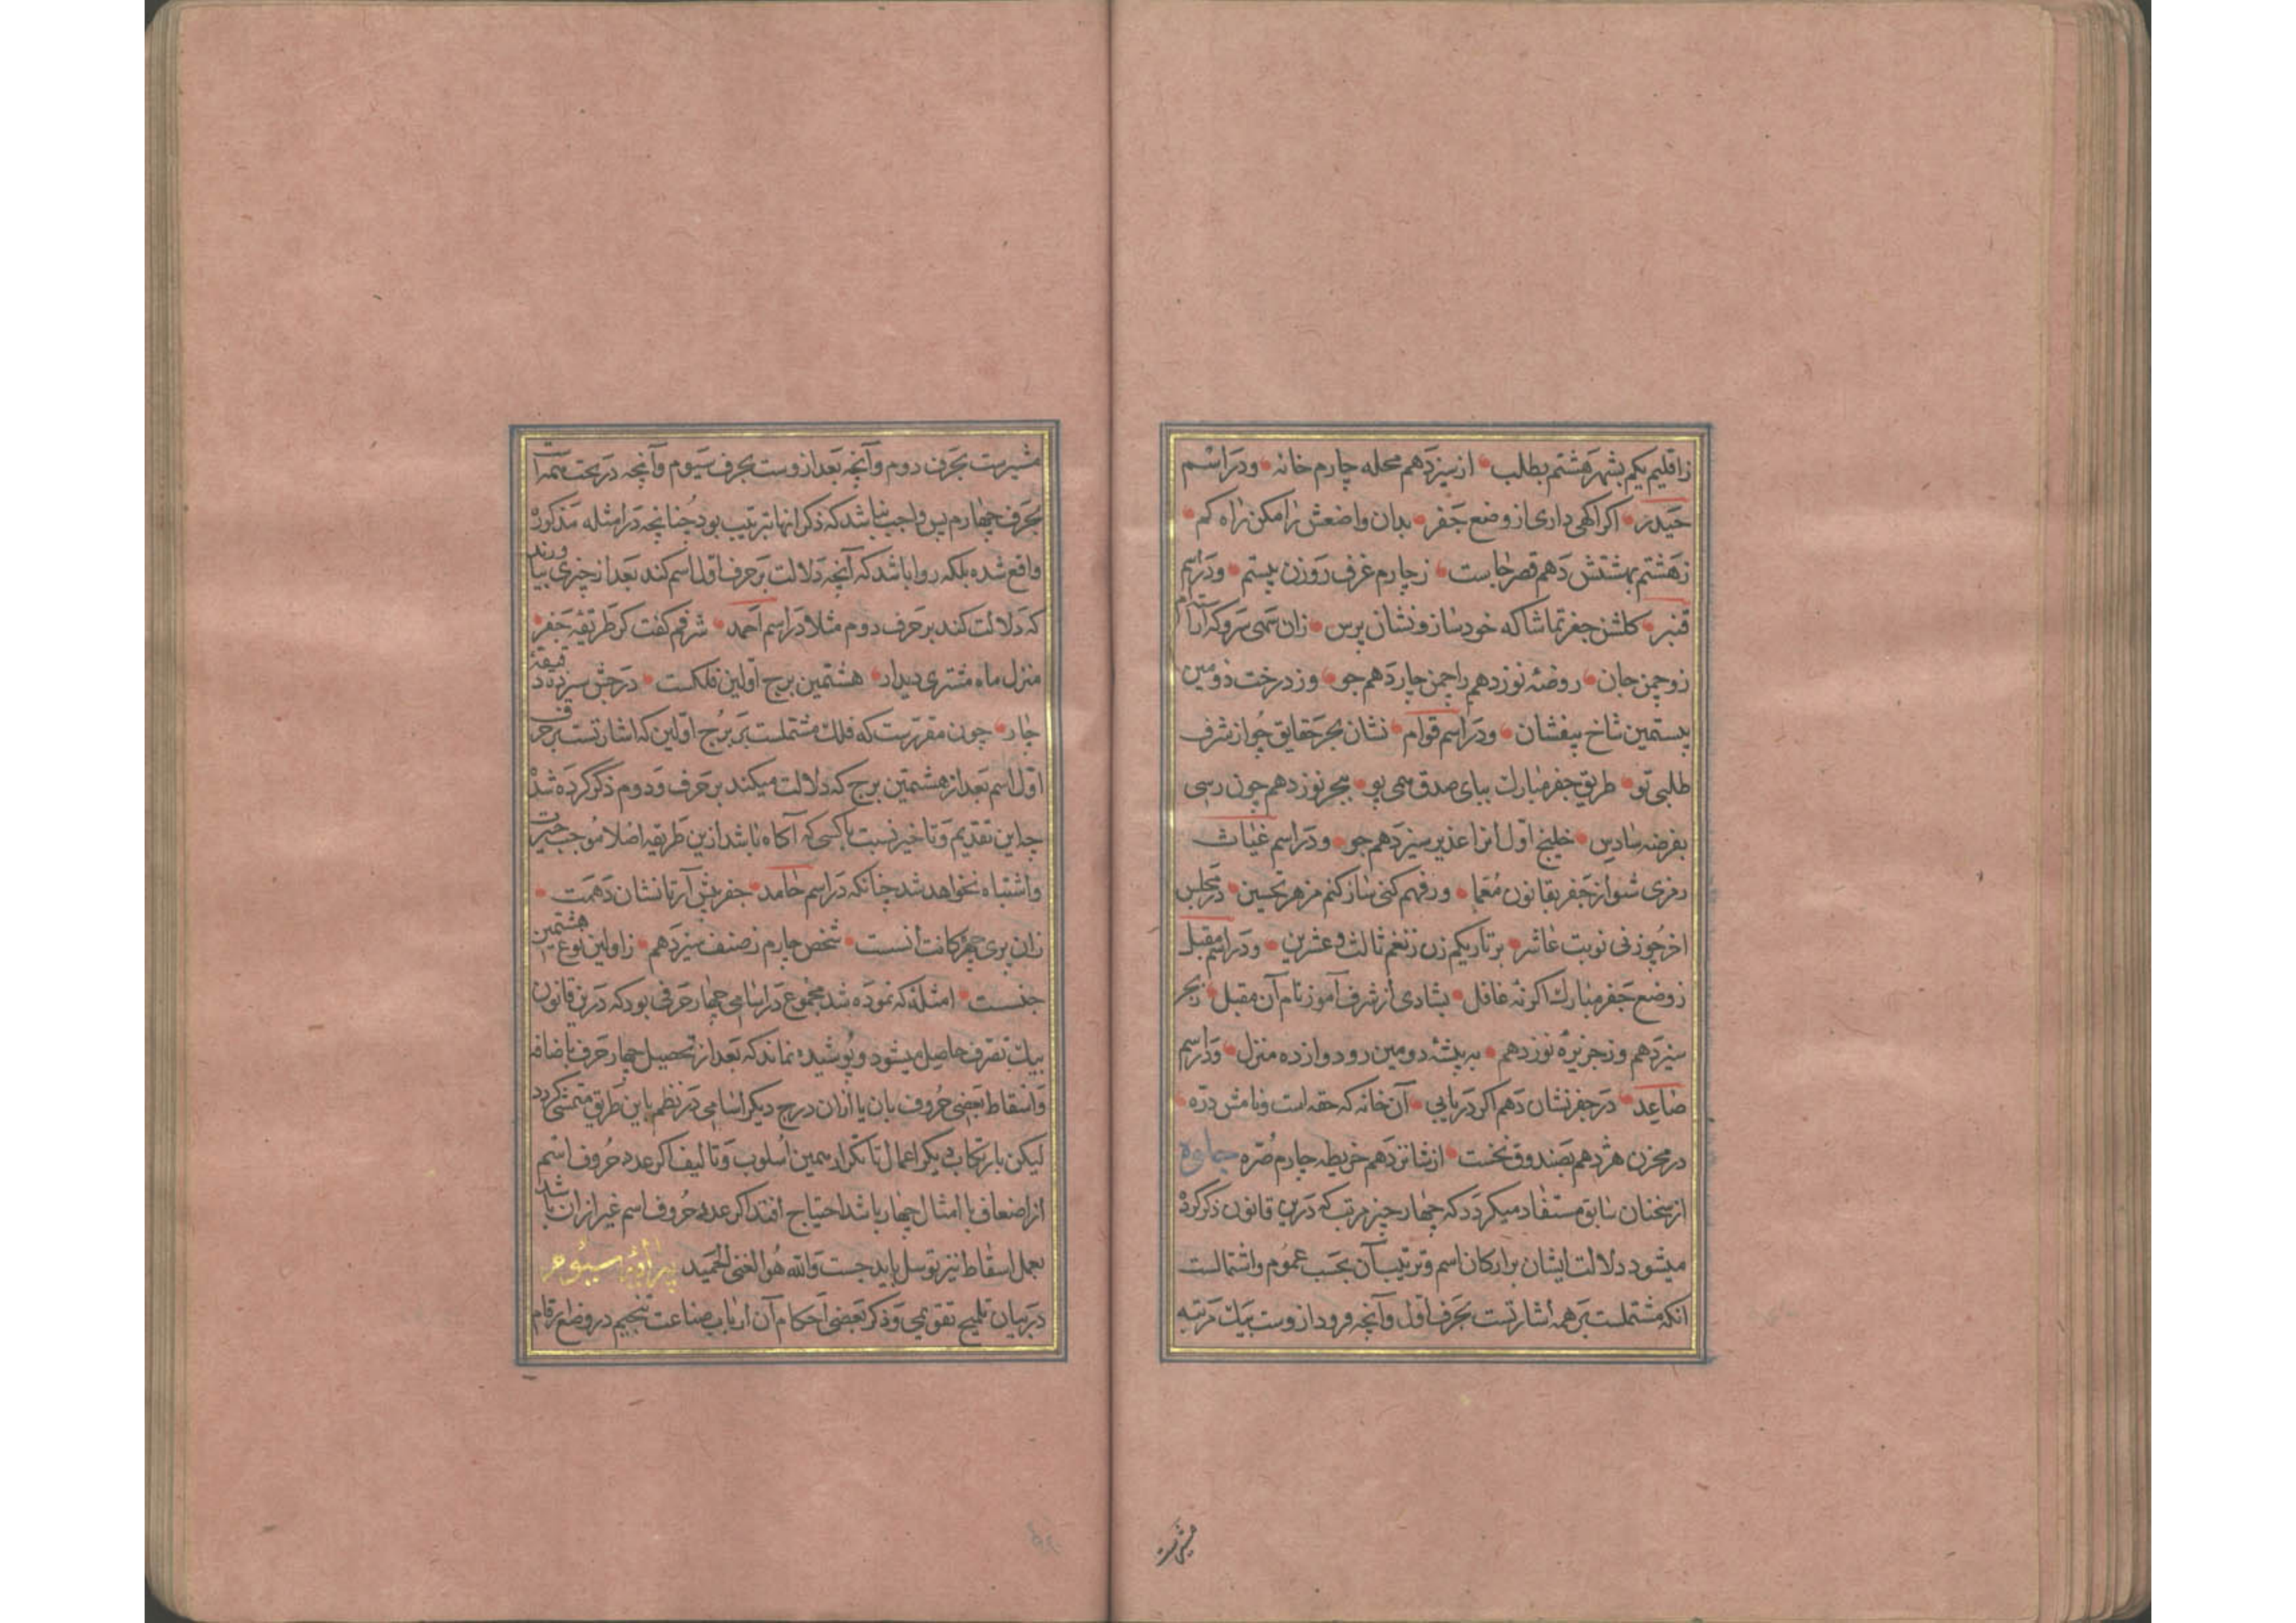 زاقلیم یکم بشهر هشتم بطلب از سیزدهم محله چارم خانه ودر اسم
حیدر اکر اکهی داری از وضع جفر بدان واضعش را مکن راه کم
زهشتم بهشتش دهم قصر خاست زچارم غرف روزن بیستم ودر اسم
قنبر کلشن جفر تماشا که خود ساز ونشان پرس زان سهی سرو که آرام
زو چمن جان روضهٔ نوزدهم را چمن چاردهم جو وز درخت دومین
بیستمین شاخ بیفشان ودر اسم قوام نشان بحر حقایق چو از شرف
طلبی تو طریق جفر مبارک بپای صدق همی پو ببحر نوزدهم چون رسی
بفرضه سادس خلیج اول انرا غدیر سیزدهم جو ودر اسم غیاث
رمزی شنو از جفر بقانون معما ور فهم کنی ساز کنم مزهر تحسین در مجلس
اخر چو زنی نوبت عاشر بر تار یکم زن زنغم ثالث وعشرین ودر اسم مقبل
زوضع جفر مبارک اکر نه غافل بشادی از شرف آموز نام آن مقبل زبحر
سیزدهم وز جزیره نوزدهم به بیشهٔ دومین رو دوازده منزل ودر اسم
صاعد در جفر نشان دهم اکر دریابی آن خانه که حقه است ونامش درّه
در مخزن هژدهم بصندوق نخست از شانزدهم خریطه چارم صُرّه
از سخنان سابق مستفاد میکردد که چهار چیز مرتب که درین قانون ذکر کرده
میشود دلالت ایشان بر ارکان اسم وترتیب آن بحسب عموم واشتمالست
انکه مشتملست بر همه اشارتست بحرف اول وآنچه فرود ازوست بیک مرتبه
مشیرست
مشیرست بحرف دوم وآنچه بعد ازوست بحرف سیوم وآنچه در تحت همه است
بحرف چهارم پس واجب نباشد که ذکر انها بترتیب بود چنانچه در امثله مذکوره
واقع شده بلکه روا باشد که آنچه دلالت بر حرف اول اسم کند بعد از چیزی بیاورند
که دلالت کند بر حرف دوم مثلا در اسم احمد شرفم کفت کز طریقهٔ جفر
منزل ماه مشتری دیدار هشتمین برج اولین فلکست درجش سیزده دقیقهٔ
چار چون مقررست که فلک مشتملست بر برج اولین که اشارتست بر حرف
اول اسم بعد از هشتمین برج که دلالت میکند بر حرف ودوم ذکر کرده شد
چه این تقدیم وتاخیر نسبت با کسی که آکاه باشد ازین طریقه اصلا موجب حیرت
واشتباه نخواهد شد چنانکه در اسم حامد جفر پیش آر تا نشان دهمت
زان پری چهره کافت انسست شخص چارم زصنف سیزدهم زاولین نوع هشتمین
جنست امثله که نموده شد مجموع در اسامی چهار حرفی بود که درین قانون
بیک تصرف حاصل میشود وپوشیده نماند که بعد از تحصیل چهار حرف باضافه
واسقاط بعضی حروف بان یا ازان درج دیکر اسامی در نظم باین طریق متمشی کردد
لیکن بارتکاب دیکر اعمال تا تکرار همین اسلوب وتالیف اکر عدد حروف اسم
از اضعاف یا امثال چهار باشد احتیاج افتد اکر عدد حروف اسم غیر ازان باشد
بعمل اسقاط نیز توسل باید جست والله هو الغنی الحمید پیرایهٔ سیوم
در بیان تلمیح تقویمی وذکر بعضی احکام آن ارباب صناعت تنجیم در وضع ارقام